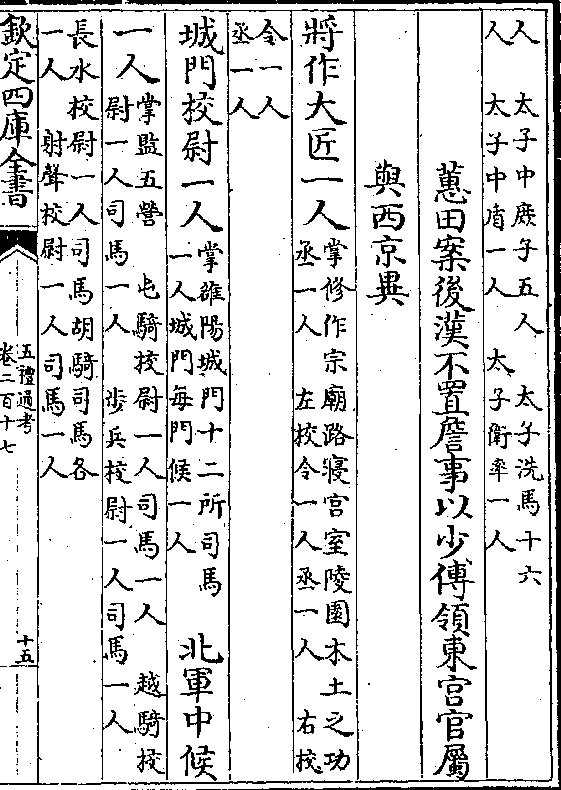 人　太子中庶子五人　太子洗馬十六
人　太子中盾一人　太子衛率一人
蕙田案後漢不置詹事以少傅領東宮官屬
與西京異
將作大匠一人掌修作宗廟路寢宮室陵園木土之功
丞一人　左校令一人丞一人　右校
令一人
丞一人
城門校尉一人掌雒陽城門十二所司馬
一人城門每門候一人
北軍中候
一人掌監五營　屯騎校尉一人司馬一人　越騎校
尉一人司馬一人　步兵校尉一人司馬一人
長水校尉一人司馬胡騎司馬各
一人　射聲校尉一人司馬一人
欽定四庫全書
五禮通考
卷二百十七
十五